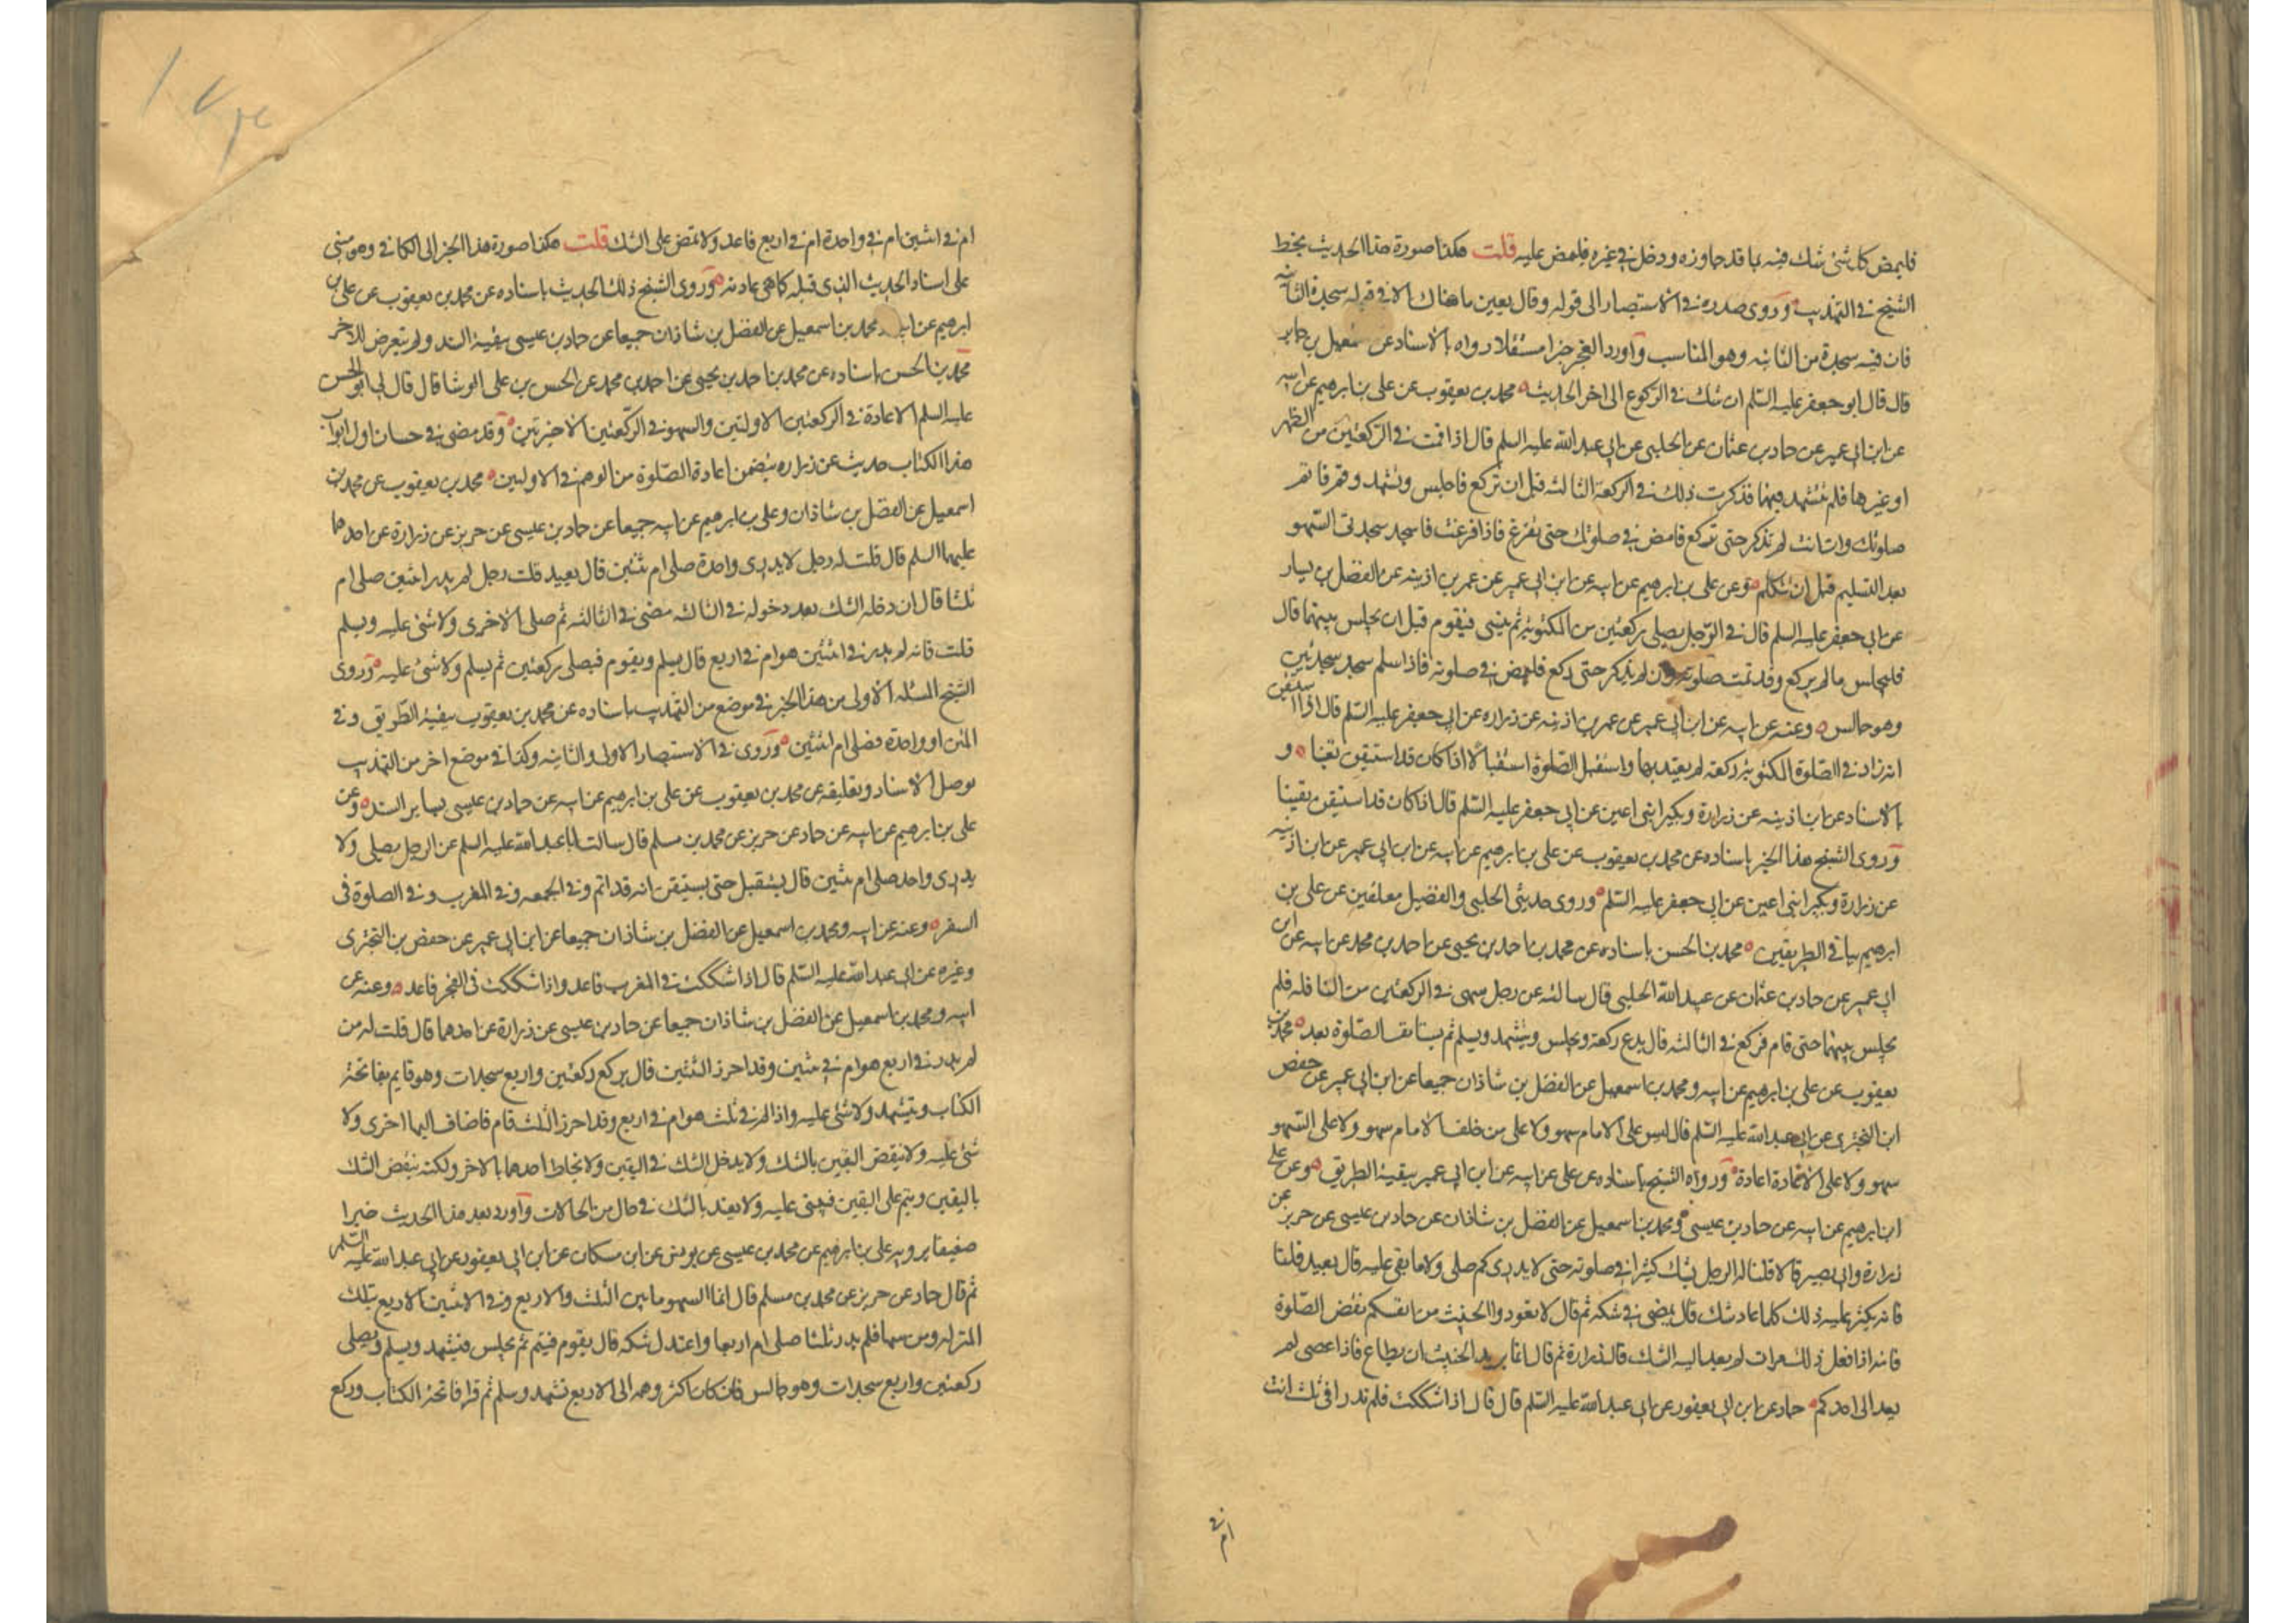 فليمض كل شئ شك فيه بما قد جاوزه ودخل في غيره فليمض عليه قلت هكذا صورة هذا الحديث بخط
الشيخ في التهذيب وروى صدره في الاستبصار الى قوله وقال بعين ما هناك الا في قوله سجدة الثانيه
فان فيه سجدة من الثانيه وهو المناسب واورد العجز خبرا مستقلا رواه بالاسناد عن اسمعيل بن جابر
قال قال ابو جعفر عليه السلم ان شك في الركوع الى اخر الحديث محمد بن يعقوب عن علي بن ابرهيم عن ابيه
عن ابن ابي عمير عن حماد بن عثمان عن الحلبي عن ابي عبد الله عليه السلم قال اذا قمت في الركعتين من الظهر
او غيرها فلم تتشهد فيهما فذكرت ذلك في الركعة الثالثه قبل ان تركع فاجلس وتشهد وقم فاتم
صلوتك وان انت لم تذكر حتى تركع فامض في صلوتك حتى تفرغ فاذا فرغت فاسجد سجدتى السهو
بعد التسليم قبل ان تتكلم وعن علي بن ابرهيم عن ابيه عن ابن ابي عمير عن عمر بن اذينه عن الفضيل بن يسار
عن ابي جعفر عليه السلم قال في الرجل يصلي ركعتين من المكتوبة ثم ينسى فيقوم قبل ان يجلس بينهما قال
فليجلس ما لم يركع وقد تمت صلوته وان لم يذكر حتى ركع فليمض في صلوته فاذا سلم سجد سجدتين
وهو جالس وعنه عن ابيه عن ابن ابي عمير عن عمر بن اذينه عن زراره عن ابي جعفر عليه السلم قال اذا استيقن
انه زاد في الصلوة المكتوبة ركعة لم يعتد بها واستقبل الصلوة استقبالا اذا كان قد استيقن يقينا و
بالاسناد عن ابن اذينه عن زرارة وبكير ابنى اعين عن ابي جعفر عليه السلم قال اذا كان قد استيقن يقينا
وروى الشيخ هذا الخبر باسناده عن محمد بن يعقوب عن علي بن ابرهيم عن ابيه عن ابن ابي عمير عن ابن اذينه
عن زرارة وبكير ابني اعين عن ابي جعفر عليه السلم وروى حديثي الحلبي والفضيل معلقين عن علي بن
ابرهيم بباقي الطريقين محمد بن الحسن باسناده عن محمد بن احمد بن يحيى عن احمد بن محمد عن ابيه عن ابن
ابي عمير عن حماد بن عثمان عن عبيد الله الحلبي قال سالته عن رجل سهى في الركعتين من النافله فلم
يجلس بينهما حتى قام فركع في الثالثه قال يدع ركعة ويجلس ويتشهد ويسلم ثم يستانف الصلوة بعد محمد بن
يعقوب عن علي بن ابرهيم عن ابيه ومحمد بن اسمعيل عن الفضل بن شاذان جميعا عن ابن ابي عمير عن حفص
ابن البختري عن ابي عبد الله عليه السلم قال ليس على الامام سهو ولا على من خلف الامام سهو ولا على السهو
سهو ولا على الاعادة اعادة ورواه الشيخ باسناده عن علي عن ابيه عن ابن ابي عمير ببقية الطريق وعن علي
ابن ابرهيم عن ابيه عن حماد بن عيسى ومحمد بن اسمعيل عن الفضل بن شاذان عن حماد بن عيسى عن حريز عن
زرارة وابي بصير قالا قلنا له الرجل يشك كثيرا في صلوته حتى لا يدرى كم صلى ولا ما بقى عليه قال يعيد قلنا
فانه يكثر عليه ذلك كلما عاد شك قال يمضى في شكه ثم قال لا تعودوا الخبيث من انفسكم نقض الصلوة
فانه اذا فعل ذلك مرات لم يعد اليه الشك قال زرارة ثم قال انما يريد الخبيث ان يطاع فاذا عصى لم
يعد الى احدكم حماد عن ابن ابي يعفور عن ابي عبد الله عليه السلم قال قال اذا شككت فلم تدر افي ثلث انت
ام في
ام في اثنين ام في واحدة ام في اربع فاعد ولا تمض على الشك قلت هكذا صورة هذا الخبر الى الكافي وهو مبنى
على اسناد الحديث الذى قبله كما هي عادته وروى الشيخ ذلك الحديث باسناده عن محمد بن يعقوب عن علي بن
ابرهيم عن ابيه ومحمد بن اسمعيل عن الفضل بن شاذان جميعا عن حماد بن عيسى ببقية السند ولم يتعرض للاخر
محمد بن الحسن باسناده عن محمد بن احمد بن يحيى عن احمد بن محمد عن الحسن بن علي الوشا قال قال لي ابو الحسن
عليه السلم الاعادة في الركعتين الاولتين والسهو في الركعتين الاخيرتين وقد مضى في حسان اول ابواب
هذا الكتاب حديث عن زراره يتضمن اعادة الصلوة من الوهم في الاولتين محمد بن يعقوب عن محمد بن
اسمعيل عن الفضل بن شاذان وعلي بن ابرهيم عن ابيه جميعا عن حماد بن عيسى عن حريز عن زرارة عن احدهما
عليهما السلم قال قلت له رجل لا يدرى واحدة صلى ام ثنتين قال يعيد قلت رجل لم يدر اثنتين صلى ام
ثلثا قال ان دخله الشك بعد دخوله في الثالثه مضى في الثالثه ثم صلى الاخرى ولا شئ عليه ويسلم
قلت فانه لم يدر في اثنتين هو ام في اربع قال يسلم ويقوم فيصلي ركعتين ثم يسلم ولا شئ عليه وروى
الشيخ المسئله الاولى من هذا الخبر في موضع من التهذيب باسناده عن محمد بن يعقوب ببقية الطريق وفي
المتن او واحدة فصلى ام اثنتين وروى في الاستبصار الاولى والثانيه وكذا في موضع اخر من التهذيب
بوصل الاسناد وتعليقه عن محمد بن يعقوب عن علي بن ابرهيم عن ابيه عن حماد بن عيسى بساير السند وعن
علي بن ابرهيم عن ابيه عن حماد عن حريز عن محمد بن مسلم قال سالت ابا عبد الله عليه السلم عن الرجل يصلى ولا
يدرى واحدة صلى ام ثنتين قال يستقبل حتى يستيقن انه قد اتم وفي الجمعه وفي المغرب وفي الصلوة في
السفر وعنه عن ابيه ومحمد بن اسمعيل عن الفضل بن شاذان جميعا عن ابن ابي عمير عن حفص بن البختري
وغيره عن ابي عبد الله عليه السلم قال اذا شككت في المغرب فاعد واذا شككت في الفجر فاعد وعنه عن
ابيه ومحمد بن اسمعيل عن الفضل بن شاذان جميعا عن حماد بن عيسى عن زرارة عن احدهما قال قلت له من
لم يدر في اربع هو ام في ثنتين وقد احرز الثنتين قال يركع ركعتين واربع سجدات وهو قايم بفاتحة
الكتاب ويتشهد ولا شئ عليه واذا لم في ثلث هو ام في اربع وقد احرز الثلث قام فاضاف اليها اخرى ولا
شئ عليه ولا ينقض اليقين بالشك ولا يدخل الشك في اليقين ولا يخلط احدهما بالاخر ولكنه ينقض الشك
باليقين ويتم على اليقين فيبنى عليه ولا يعتد بالشك في حال من الحالات واورد بعد هذا الحديث خبرا
ضعيفا يرويه علي بن ابرهيم عن محمد بن عيسى عن يونس عن ابن مسكان عن ابن ابي يعفور عن ابي عبد الله عليه السلم
ثم قال حماد عن حريز عن محمد بن مسلم قال انما السهو ما بين الثلث والاربع وفي الاثنين الاربع بتلك
المنزله ومن سها فلم يدر ثلثا صلى ام اربعا واعتدل شكه قال يقوم فيتم ثم يجلس فيتشهد ويسلم ويصلى
ركعتين واربع سجدات وهو جالس فان كان اكثر وهمه الى الاربع تشهد وسلم ثم قرا فاتحة الكتاب وركع